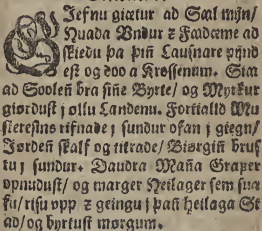 Jesnu giætur ad Sæl mijn/
Huada Vndur ꝛ Fædæme ad
skiedu þa þin Lausnare pijnd
est og doo a Krossenum. Siaa
ad Soolen bra siñe Byrte/ og Myrkur
giørdust j øllu Landenu. Fortialld Mu
steresins rifnade j sundur ofan j giegn/
Jørden skalf og titrade/ Biørgin brus
tu j sundur. Daudra Maña Grafer
opnudust/ og marger Heilager sem sua
fu/ risu vpp ꝛ geingu j þañ heilaga St
ad/ og byrtust mørgum.